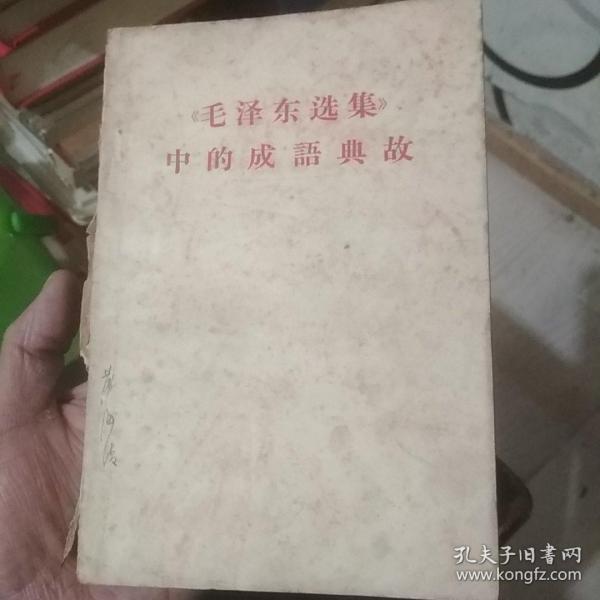 《毛泽东选集》
中的成語典故
孔夫子旧书网
www.kongfz.com